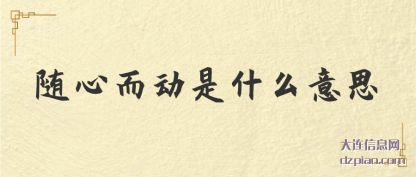 随心而动是什么意思
大连信息网
dzpiao.com